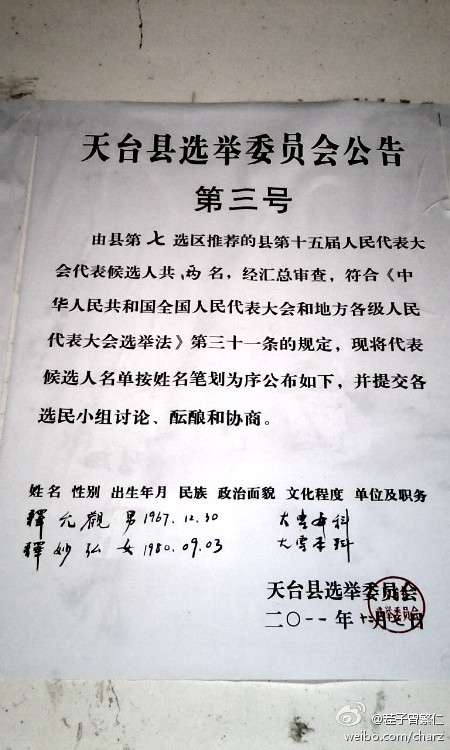 天台县选举委员会公告
第三号
由县第七选区推荐的县第十五届人民代表大
会代表候选人共两名，经汇总审查，符合《中
华人民共和国全国人民代表大会和地方各级人民
代表大会选举法》第三十一条的规定，现将代表
候选人名单按姓名笔划为序公布如下，并提交各
选民小组讨论、酝酿和协商。
姓名 性别 出生年月 民族 政治面貌 文化程度 单位及职务
釋允觀 男 1967.12.30 大学本科
釋妙弘 女 1980.09.03 大学本科
天台县选举委员会
二〇一一年十二月七日
选举委员会
@茬子曾繁仁
weibo.com/charz